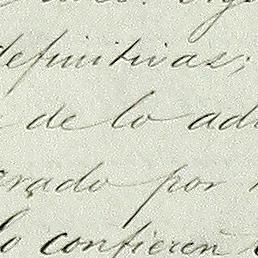 definitivas;
de lo ad
rado por
lo confieren